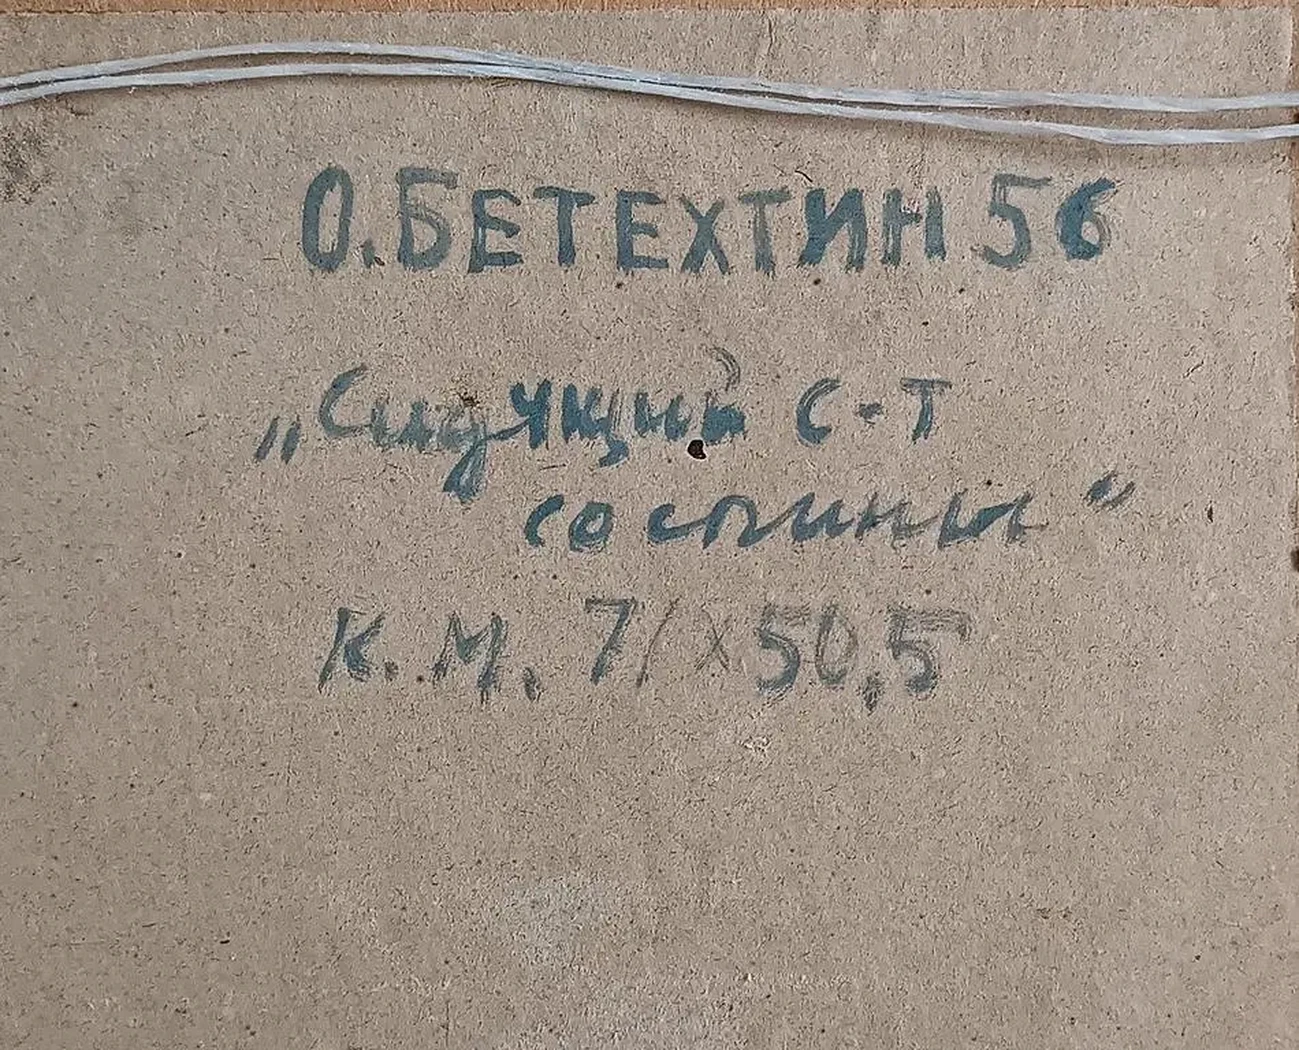 О. БЕТЕХТИН 56
„Сидущий С-Т
со спины"
К. М. 71 х 50,5